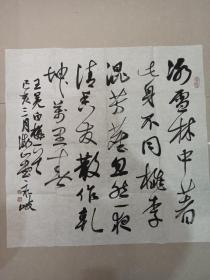 冰雪林中著
此身不同桃李
混芳尘忽然一夜
清香发散作乾
坤万里春
王冕白梅一首
己亥三月